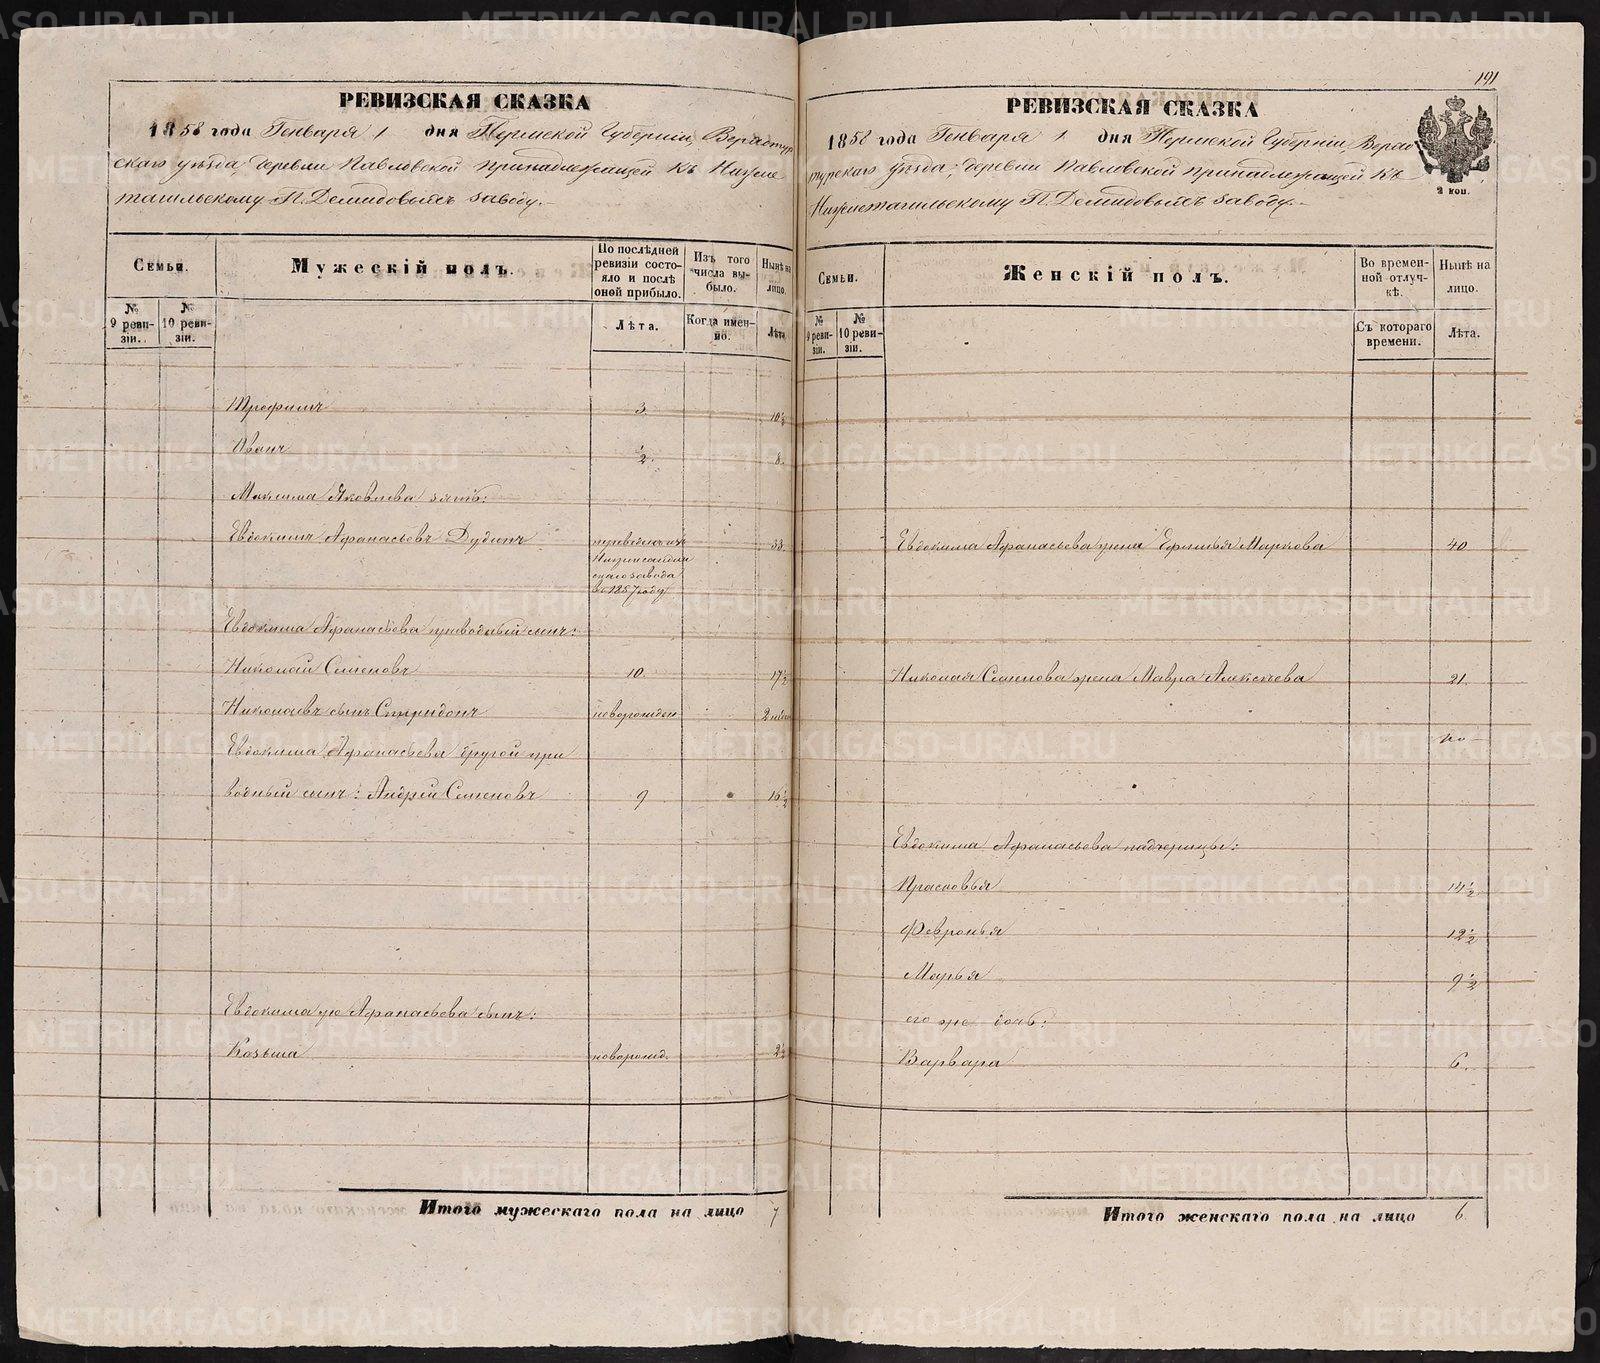 РЕВИЗСКАЯ СКАЗКА
1858 года Генваря 1 дня Пермской Губерніи, Верхотур
скаго уѣзда, деревни Павловской принадлежащей къ Нижне
тагильскому П. Демидовыхъ заводу.
Семьи.
№ 9 ревизіи.
№ 10 ревизіи.
Мужескій полъ.
По послѣдней ревизіи состояло и послѣ оной прибыло.
Лѣта.
Изъ того числа выбыло.
Когда именно.
Нынѣ на лицо.
Лѣта
Трофимъ 3. 10½
Иванъ ½ 8.
Максима Яковлева зять:
Евдокимъ Афанасьевъ Дудинъ 33.
завода
въ 1857 году
Евдокима Афанасьева приводный сынъ:
Николай Семеновъ 10. 17½
Николаевъ сынъ Спиридонъ новорожден 2
Евдокима Афанасьева другой при
водный сынъ: Андрей Семеновъ 9 16½
Евдокима же Афанасьева сынъ:
Козьма новорожд. 2½
Итого мужескаго пола на лицо 7
191
РЕВИЗСКАЯ СКАЗКА
1858 года Генваря 1 дня Пермской Губерніи, Верхо
турскаго уѣзда, деревни Павловской принадлежащей къ
Нижнетагильскому П. Демидовыхъ заводу.
2 коп.
Семьи.
№ 9 ревизіи.
№ 10 ревизіи.
Женскій полъ.
Во временной отлучкѣ.
Съ котораго времени.
Нынѣ на лицо.
Лѣта.
Евдокима Афанасьева жена Ефимья Маркова 40
Николая Семенова жена Мавра Алексѣева 21.
Евдокима Афанасьева падчерицы:
Прасковья 14½
Февронья 12½
Марья 9½
его же дочь:
Варвара 6.
Итого женскаго пола на лицо 6
METRIKI.GASO-URAL.RU